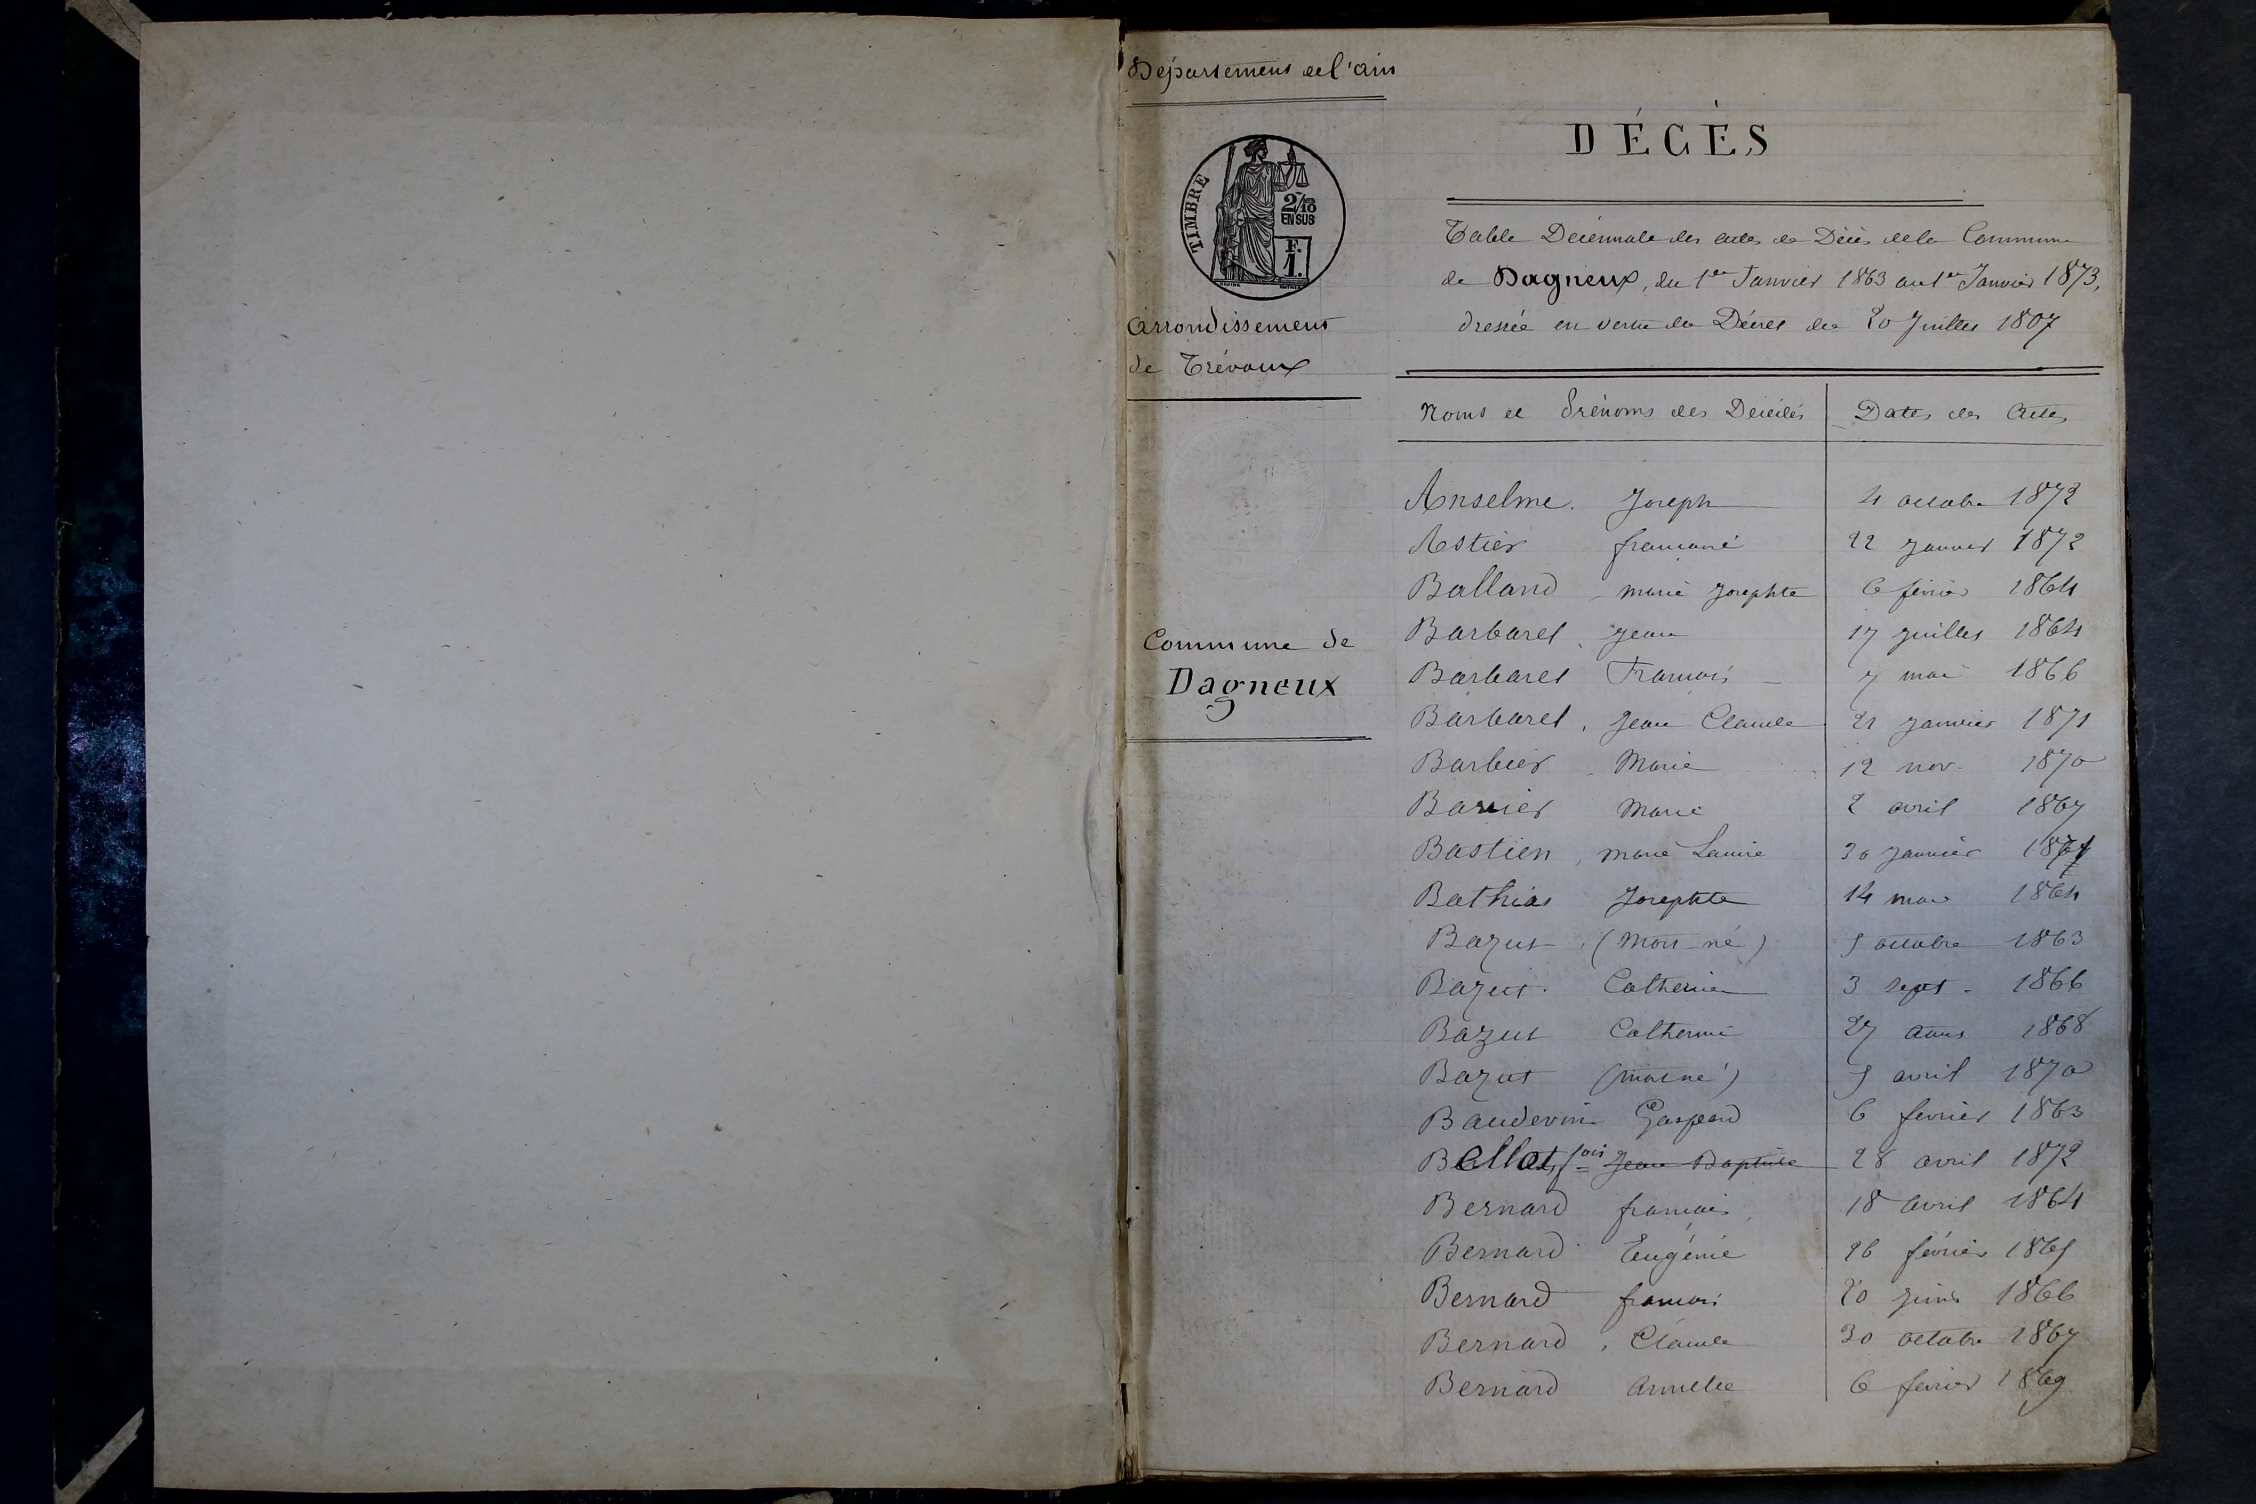 Département de l'ain
TIMBRE
2/10
EN SUS
F.
1.
Arrondissement
de Trévoux
Commune de
Dagneux
DÉCÈS
Table Décennale des actes de Décès de la Commune
de Dagneux, du 1er Janvier 1863 au 1er Janvier 1873,
dressée en vertu du Décret du 20 Juillet 1807
Noms et Prénoms des Décédés Dates des Actes
Anselme. Joseph 4 octobre 1872
Astier francoise 22 janvier 1872
Balland marie Josephte 6 février 1864
Barbaret jean 17 juillet 1864
Barbaret Francois 7 mai 1866
Barbaret, jean Claude 21 janvier 1871
Barbier Marie 12 nov. 1870
Barrier Marie 2 avril 1867
Bastien, marie Louise 30 janvier 1871
Bathias Josephte 14 mars 1864
Bazut (Mort-né) 5 octobre 1863
Bazut. Catherine 3 sept. 1866
Bazut Catherine 27 aout 1868
Bazut (mort né) 5 avril 1870
Baudevin Gaspard 6 fevrier 1863
Bellot, fois Jean Baptiste 28 avril 1872
Bernard francois 18 avril 1864
Bernard Eugénie 26 février 1865
Bernard francois 20 juin 1866
Bernard, Claude 30 octobre 1867
Bernard 6 février 1869